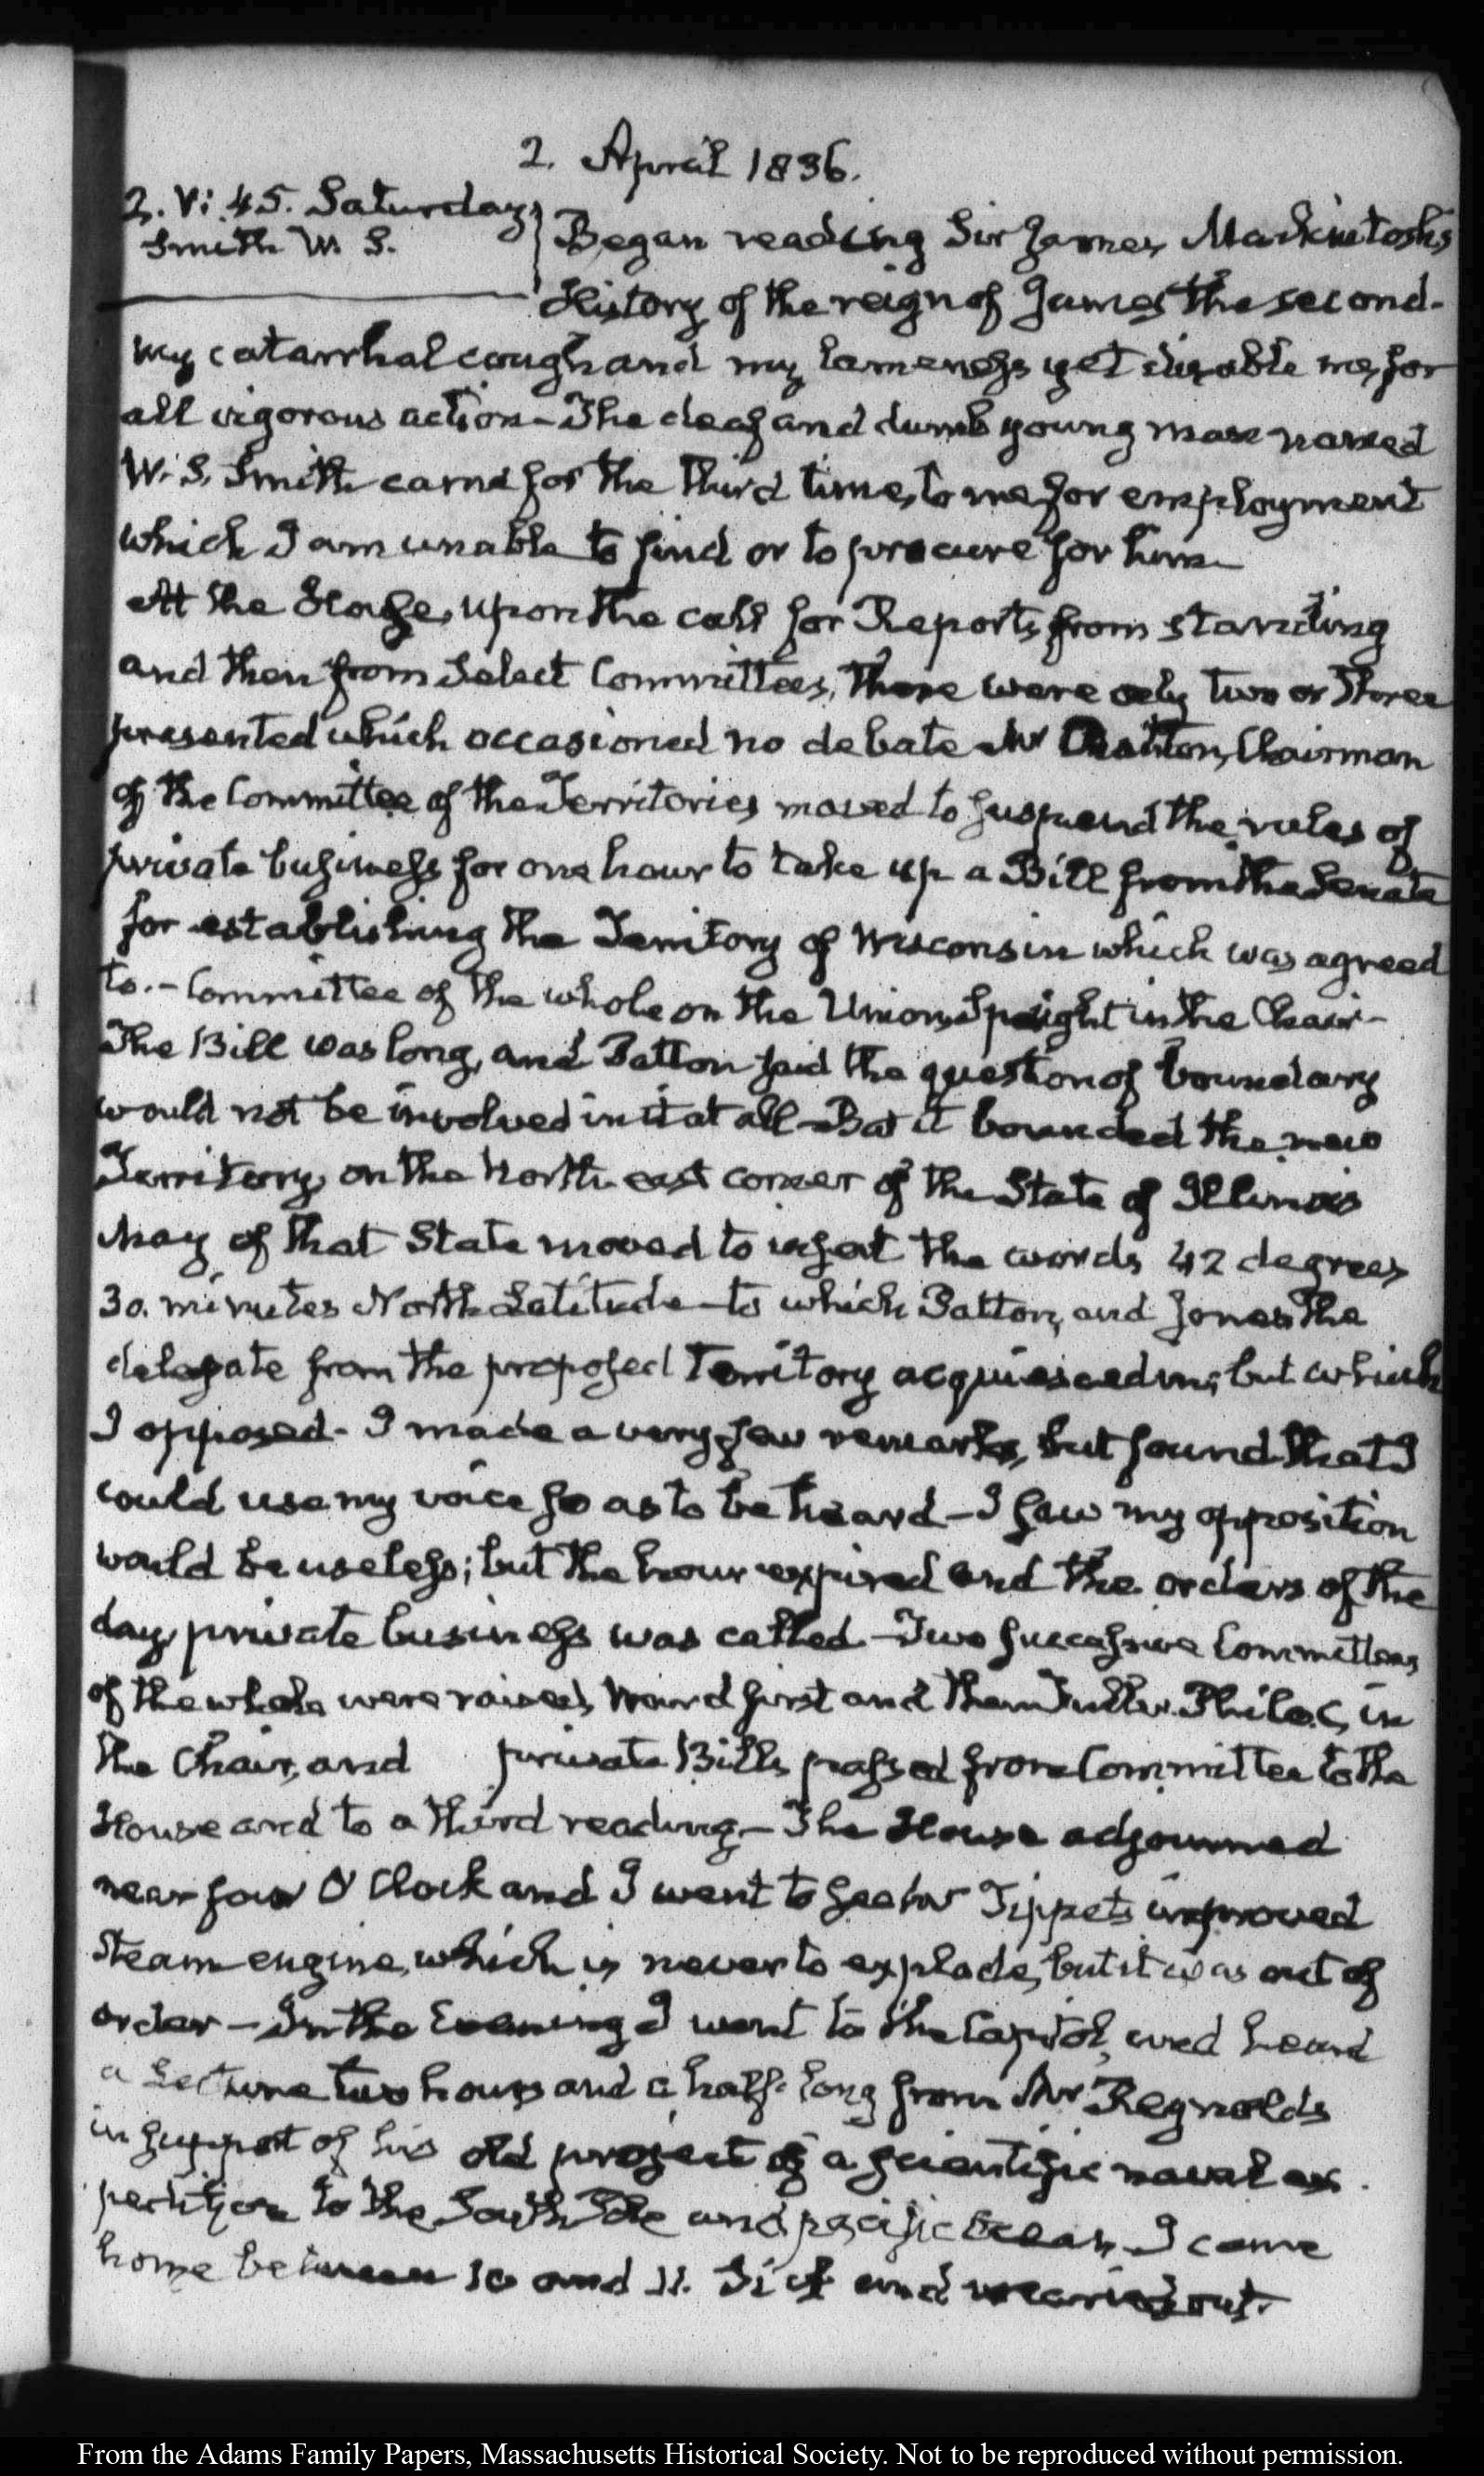 2. April 1836.
2. VI: 45. Saturday
Smith W. S.
Began reading Sir James Mackintosh's
History of the reign of James the second-
my catarrhal cough and my lameness yet disable me for
all vigorous action — The deaf and dumb young man named
W. S. Smith came for the third time, to me for employment
which I am unable to find or to procure for him —
At the House, upon the call for Reports from standing
and then from Select Committees, there were only two or three
presented which occasioned no debate Mr Patton, Chairman
of the Committee of the Territories moved to suspend the rules of
private business for one hour to take up a Bill from the Senate
for establishing the Territory of Wisconsin which was agreed
to. — Committee of the whole on the Union, Speight in the Chair —
The Bill was long, and Patton said the question of boundary
would not be involved in it at all — But it bounded the new
Territory, on the North east corner of the State of Illinois
May of that State moved to insert the words 42 degrees
30. minutes North Latitude — to which Patton, and Jones the
delegate from the proposed Territory acquiesced in; but which
I opposed - I made a very few remarks, but found that I
could use my voice so as to be heard — I saw my opposition
would be useless; but the hour expired and the orders of the
day, private business was called — Two successive Committees
of the whole were raised, Ward first and then Fuller Philo C, in
the Chair, and private Bills passed from Committee to the
House and to a third reading — The House adjourned
near four O'Clock and I went to see Mr Tippets improved
Steam engine, which is never to explode, but it was out of
order — In the Evening I went to the Capitol, and heard
a Lecture two hours and a half long from Mr Reynolds
in support of his old project of a scientific naval ex
pedition to the South Pole and pacific Ocean, I came
home between 10 and 11. Sick and wearied out.
From the Adams Family Papers, Massachusetts Historical Society. Not to be reproduced without permission.